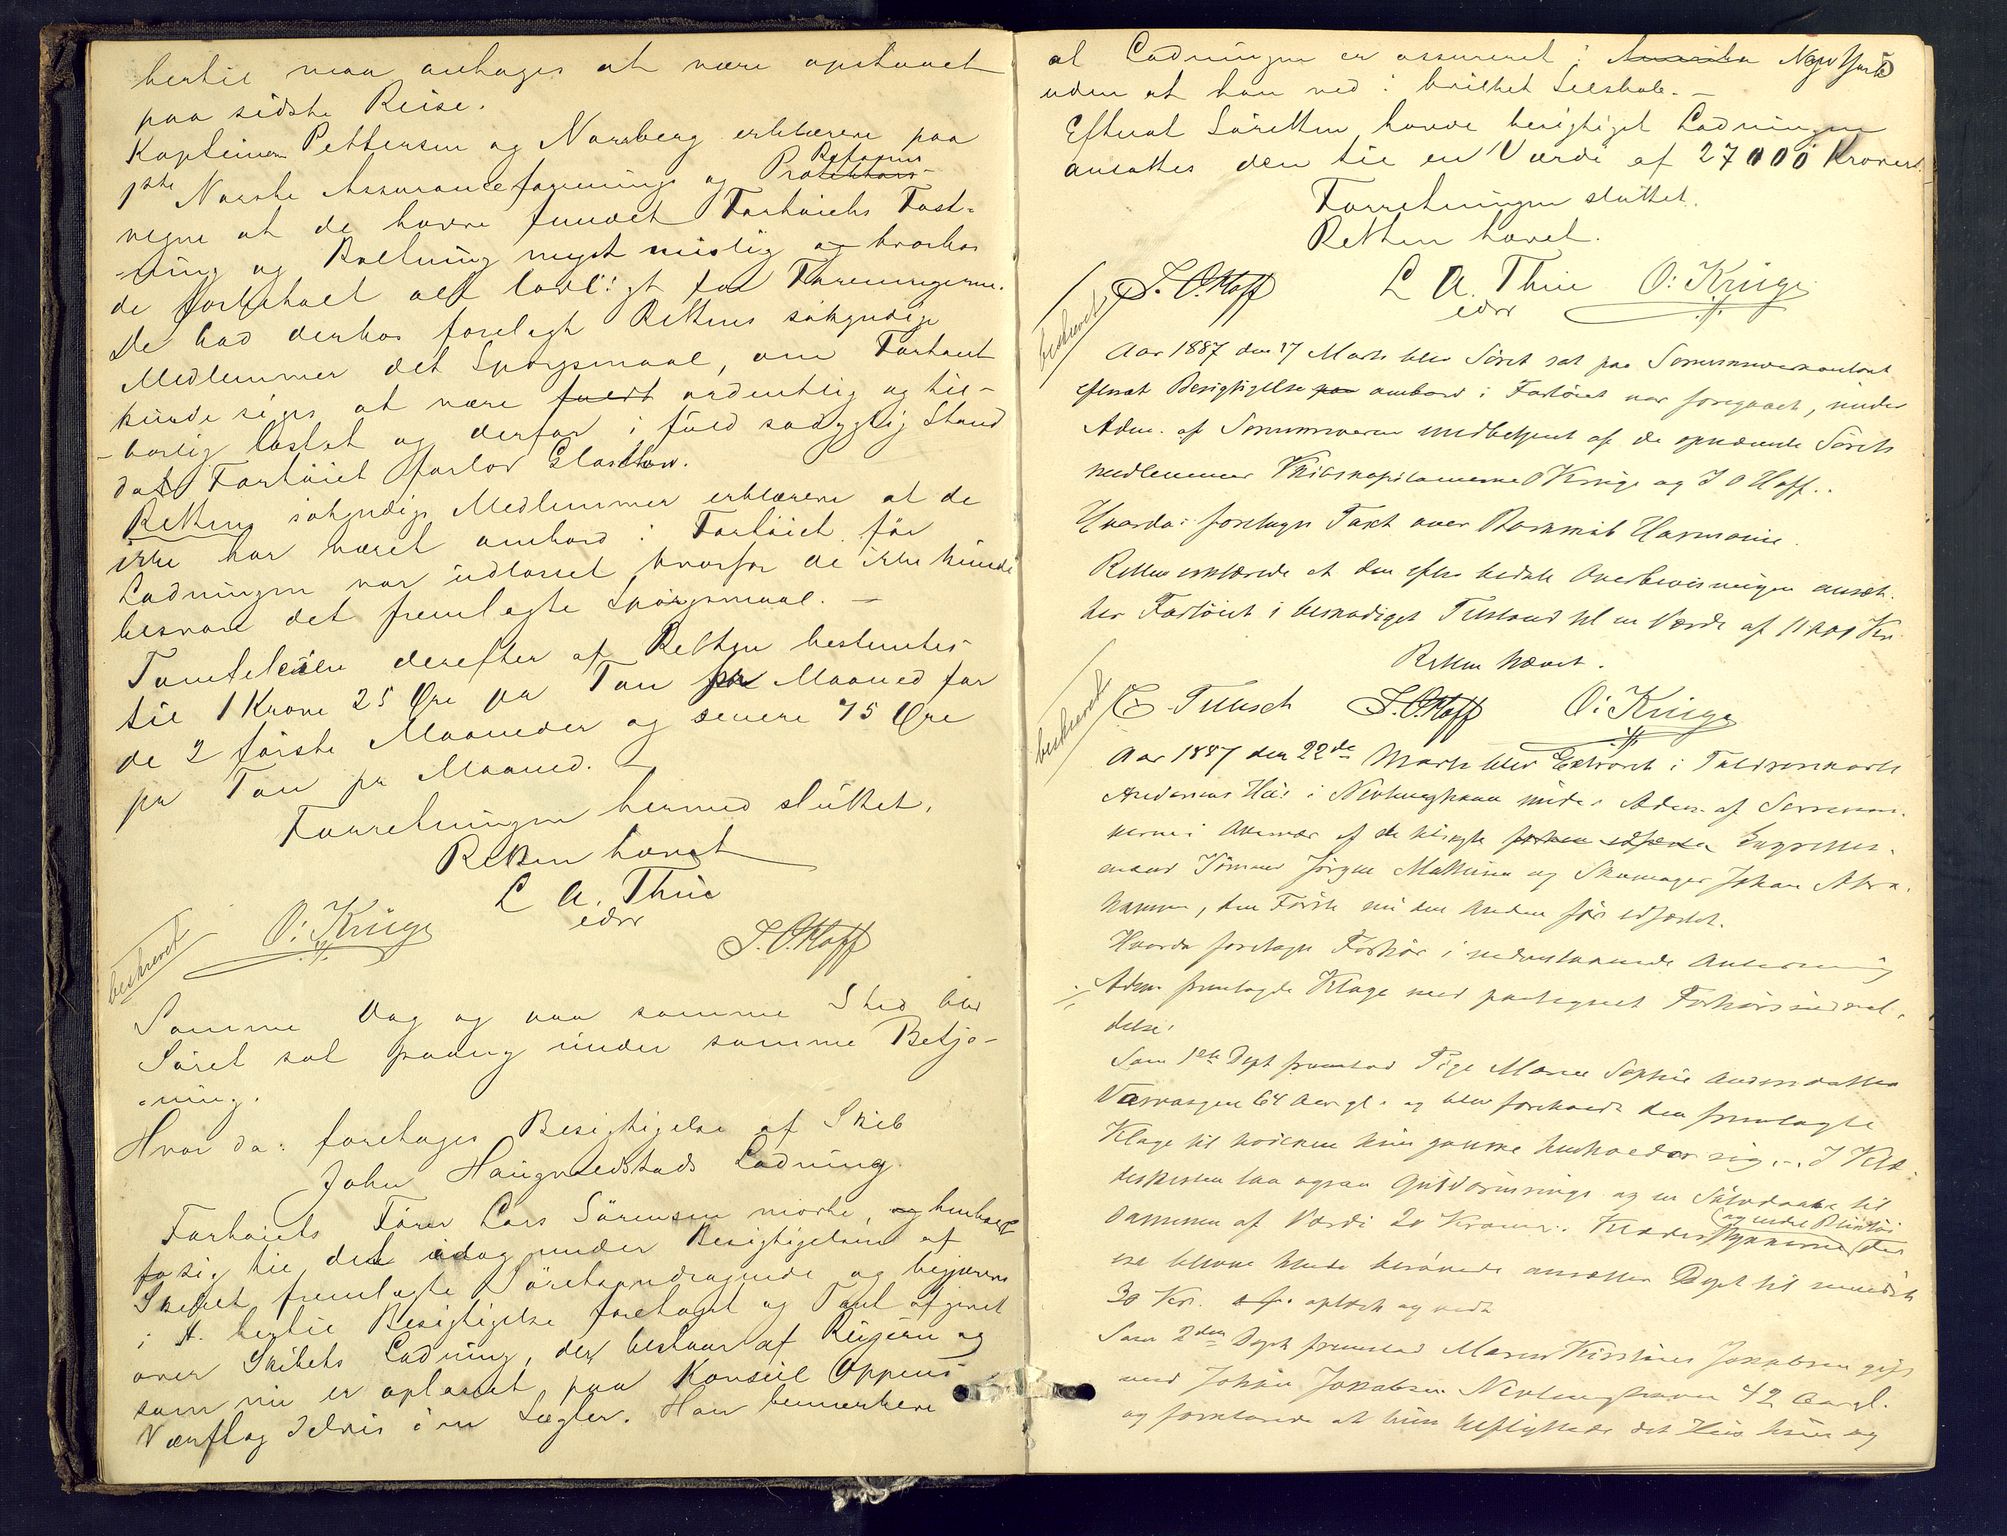 hertil maa antages at være opstaaet
paa sidste Reise.
Kapteinen Pettersen og Narsberg erklærere paa
1ste Norske Assuranceforenings og Reform
vegne at de havre fundet Fartøiets Fast-
ning og Boltning meget mislig og hvorhos
de forbeholdt alt lovligt for Foreningerne.
De bad derhos forelagt Rettens søkyndige
Medlemmer det Spørgsmaal, om Fartøiet
kunde siges at være ordentlig og til-
-børlig lastet og derfor i fuld sødygtig Stand
da Fartøiet forlod
Rettens søkyndige Medlemmer erklærere at de
ikke har været ombord i Fartøiet før
Ladningen var udlosset hvorfor de ikke kunde
besvare det fremlagte Spørgsmaal. —
Tomteleien derefter af Retten bestemtes
til 1 Krone 25 Øre pr Ton pr Maaned for
de 2 første Maaneder og senere 75 Øre
pr Ton pr Maaned. —
Forretningen hermed sluttet.
Retten hævet
L A. Thue
edsv
O: Krüge J. O. Hoff
beskrevet
Samme Dag og paa samme Sted blev
Søret sat paany under samme Betje-
-ning.
Hvor da: foretoges Besigtigelse af Skib
John Haugvaldstads Ladning.
Fartøiets Fører Lars Sørensen mødte, og henholdt
sig til det idag under Besigtigelsen af
Skibet fremlagte Søretsandragende og begjærere
i H. hertil Besigtigelse foretaget og Taxt afgivet
over Skibets Ladning, der bestaar af Rujern og
som nu er oplosset paa Konsul Oppens
Værft og delvis i en Lægter. Han bemærkere
at Ladningen er assureret i New York
uden at han ved i hvilket Selskab. —
Efterat Søretten havde besigtiget Ladningen
ansattes den til en Værdi af 27000 Kroner.
Forretningen sluttet.
Retten hævet.
J. O. Hoff L A. Thue O: Krüge
edsv
beskrevet
Aar 1887 den 17 Marts blev Søret sat paa Sorenskriverkontoret
efterat Besigtigelse ombord i Fartøiet var foregaaet, under
Adm. af Sorenskriveren medbetjent af de opnævnte Sørets
medlemmer Skibskapitainerne O Krüge og J O Hoff..
Hvorda: foretoges Taxt over Harmonie.
Retten erklærede at den efter bedste Overbevisningen ansæt-
ter Fartøiet i beskadiget Tilstand til en Værdi af 11000 Kr.
Retten hævet.
C. Tuusch J. O. Hoff O: Krüge
beskrevet
Aar 1887 den 22de Marts blev Extraret i
Andersens Hus i Nevlunghavn under Adm. af Sorenskri-
veren i Overvær af
mænd Tømmer Jørgen Mathisen og Skomager Johan Abra-
hamsen, den Første nu den Anden før edfæstet.
Hvorda foretoges Forhør i nedenstaaende Anledning
Adm. fremlagde Klage med paategnet Forhørsindkal-
delse.
Som 1ste Dept fremstod Pige Maren Sophie Andersdatter
64 Aar gl. og blev foreholdt den fremlagte
Klage til hvilken hun ganske henholder sig. I Klæ-
deskisten laa ogsaa Guldørenringe og en Sølvdaase til
sammen af Værdi 20 Kroner. Klæderne
hende berøvede ansætter Dept til mindst
30 Kr. oplæst og vedt
Som 2den Dept fremstod Maren Kirstine Jakobsen gift
med Johan Jakobsen Nevlunghavn 42 Aar gl.
og forklarede at hun tilflyttede det Hus hun og